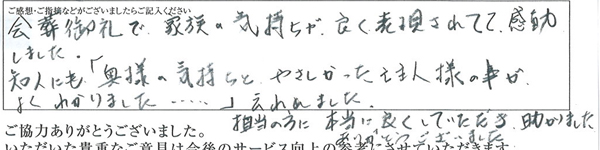 ご感想・ご指摘などがございましたらご記入ください
会葬御礼で、家族の気持ちが、良く表現されてて、感動
しました。
知人にも「奥様の気持ちと、やさしかった主人様の事が
よくわかりました……」言われました。
担当の方に本当に良くしていただき、助かりました
ありがとうございました
ご協力ありがとうございました。
いただいた貴重なご意見は今後のサービス向上の参考にさせていただきます